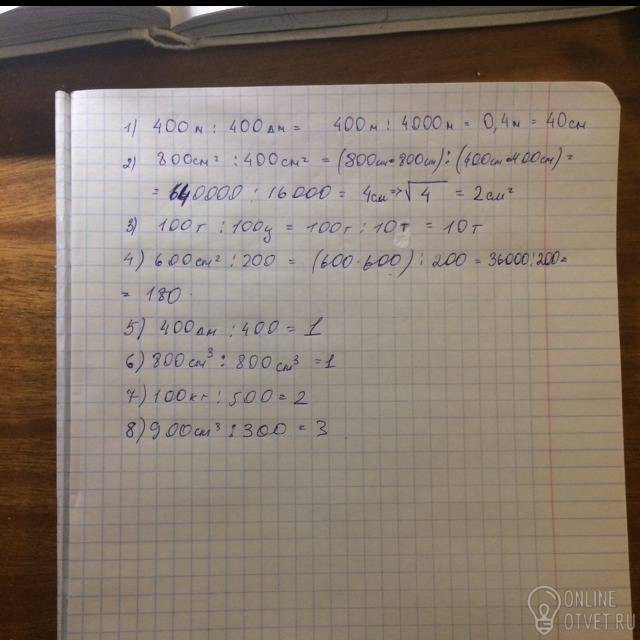 1) 400м : 400дм = 400м : 4000м = 0,4м = 40см
2) 800см² : 400см² = (800см·800см) : (400см·400см) =
= 640000 : 16000 = 4см => √4 = 2см²
3) 100т : 100ц = 100т : 10т = 10т
4) 600см² : 200 = (600·600) : 200 = 36000:200=
= 180.
5) 400дм : 400 = 1
6) 800см³ : 800см³ = 1
7) 100кг : 500 = 2
8) 900см³ : 300 = 3
ONLINE
OTVET.RU